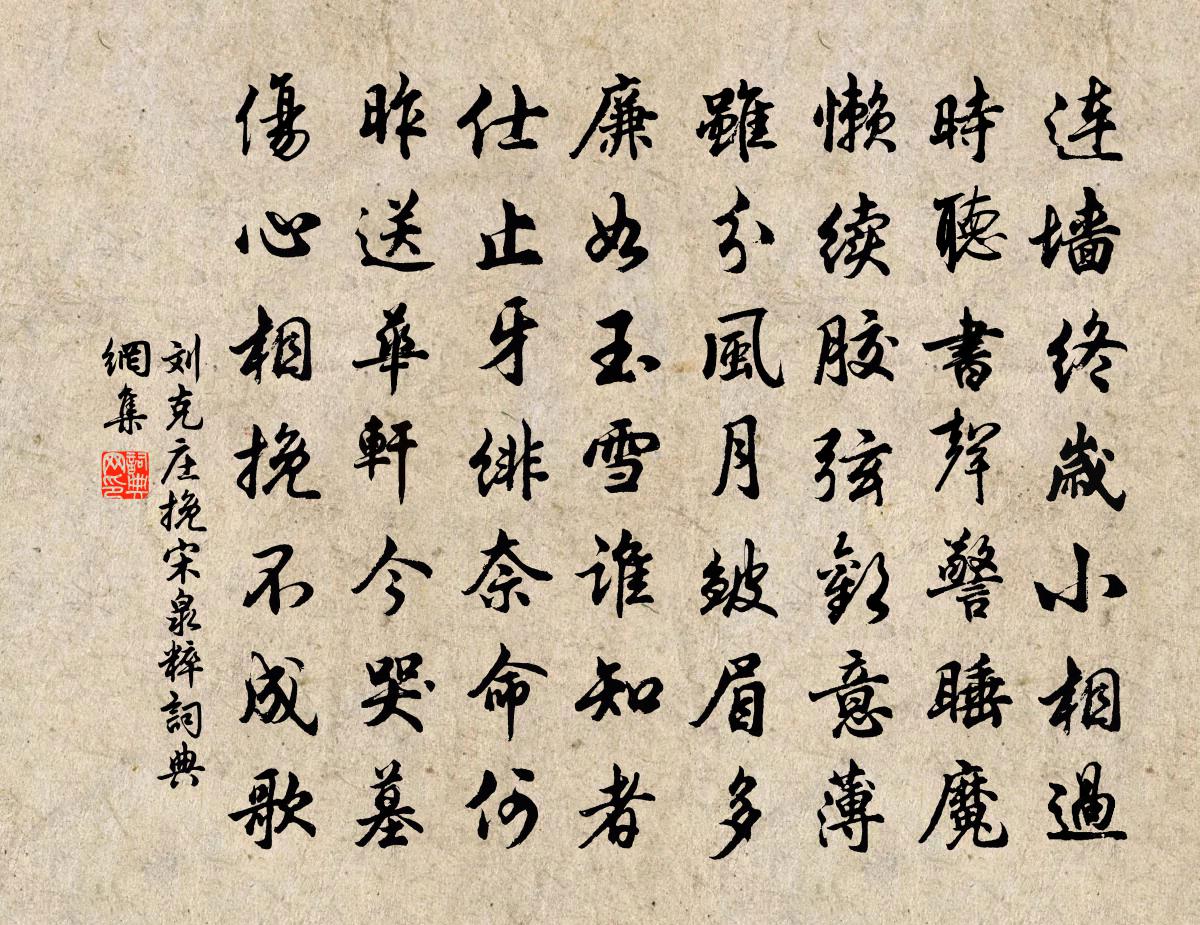 连墙终歲小相過
時聽書聲警睡魔
懒续胶弦歡意薄
雖分風月皱眉多
廉如玉雪谁知者
仕止牙緋奈命何
昨送華軒今哭墓
傷心相挽不成歌
刘克庄挽宋泉粹詞典
網集
詞典
网